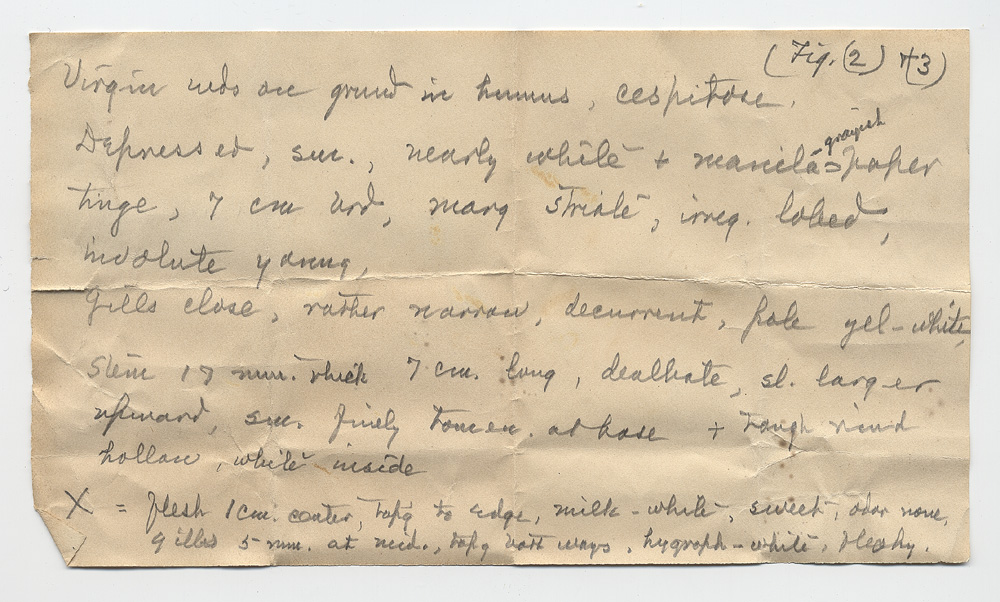 (Fig. (2) + (3)
Virgin wds on grund in humus, cespitose.
Depressed, sm., nearly white + manila=paper
grayish
tinge, 7 cm brd, marg striate, irreg. lobed,
involute young,
Gills close, rather narrow, decurrent, pale yel-white,
Stem 17 mm. thick 7 cm. long, dealbate, sl. larger
upward, sm. finely tomen. at base + tough rind
hollow, white inside
X = flesh 1 cm. center, tap'g to edge, milk-white, sweet, odor none,
gills 5 mm. at med., tap'g both ways, hygroph-white, fleshy.